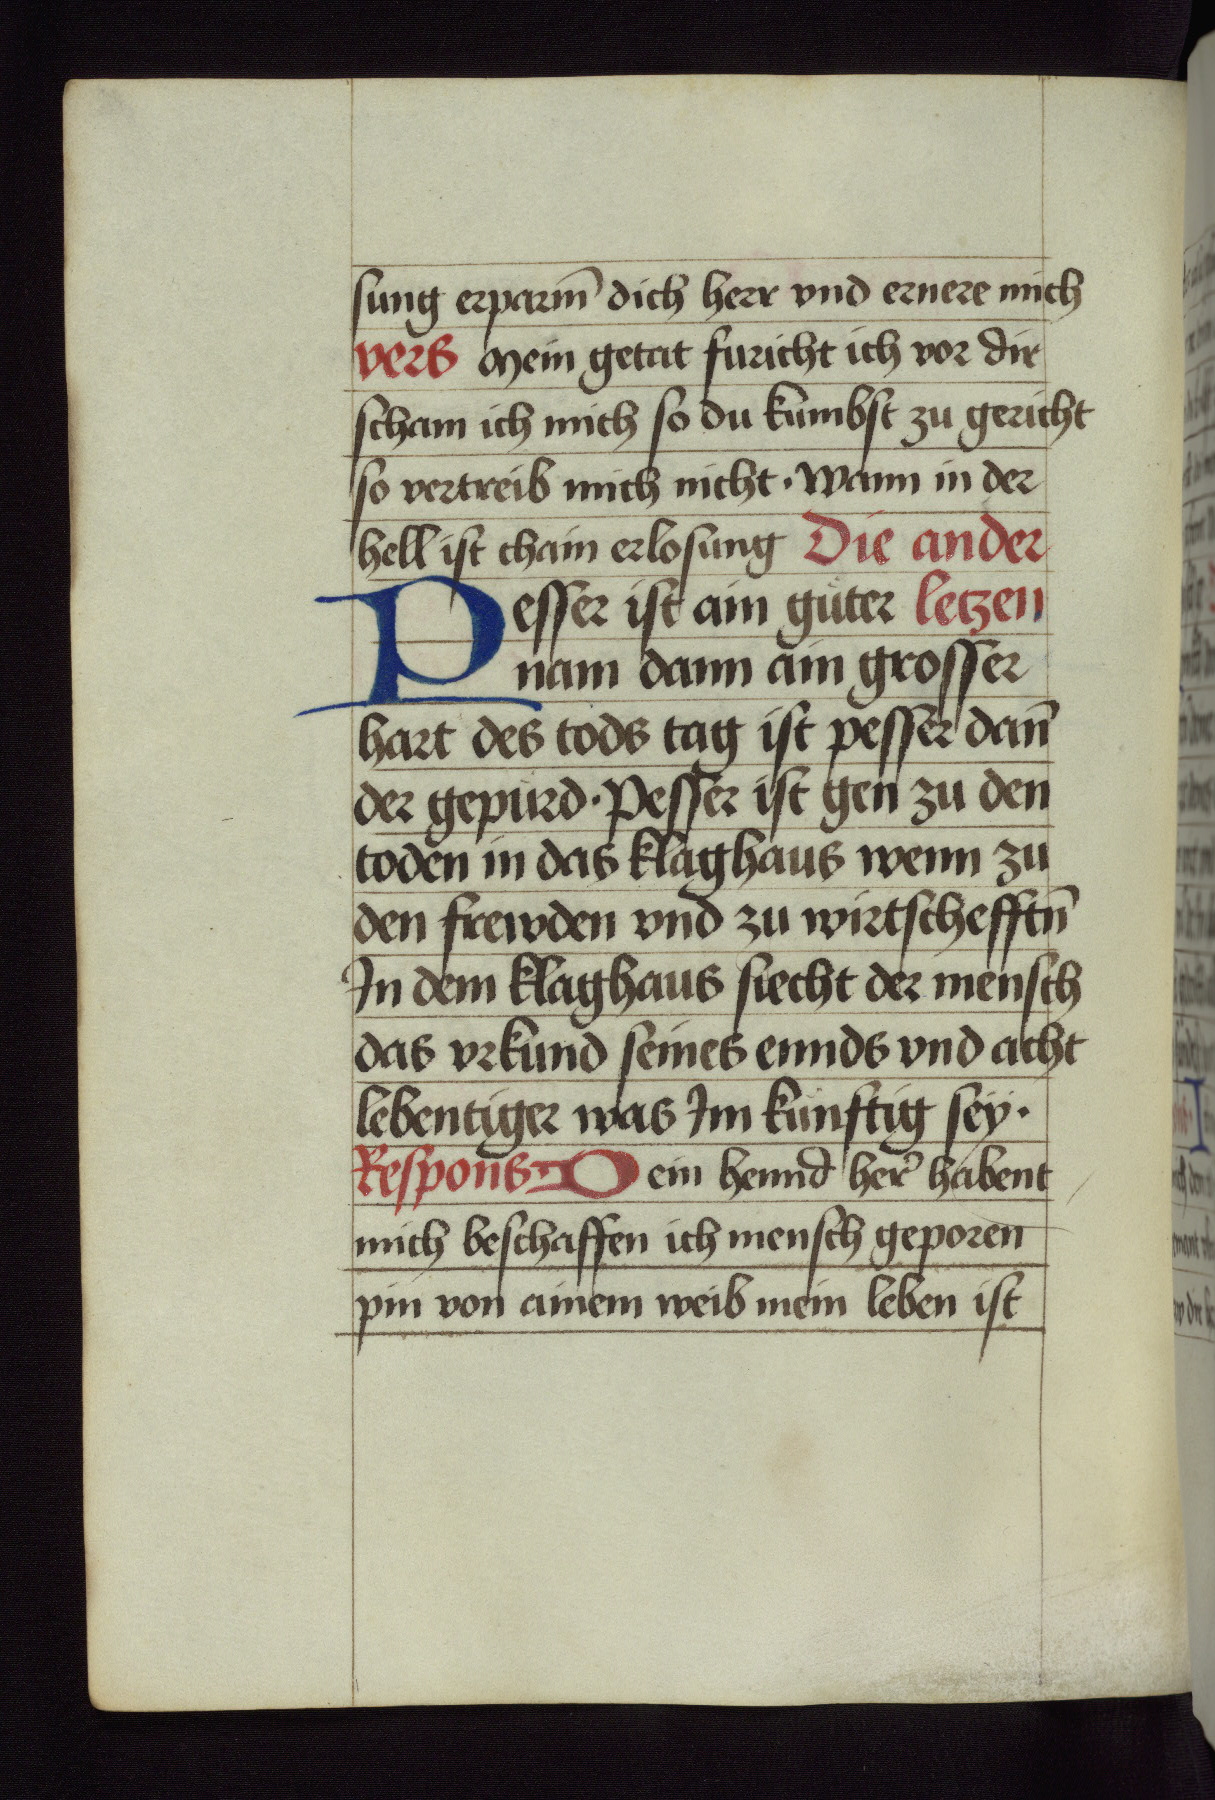 sung erparm̄ dich herr vnd ernere mich
vers Mein getat furicht ich vor dir
scham ich mich so du kumbst zu gericht
so vertreib mich nicht · Wann in der
hell ist chain erlosung Die ander
Pesser ist ain guͤter letzen
nam dann ain grosser
hart des tods tag ist pesser dan̄
der gepurd · Pesser ist gen zu den
toden in das klaghaus wenn zu
den frewden vnd zu wirtschefftn̄
In dem klaghaus siecht der mensch
das vrkund seines ennds vnd acht
lebentiger was Im kunftig sey ·
Respons Dein hennd her̄ habent
mich beschaffen ich mensch geporen
pin von ainem weib mein leben ist